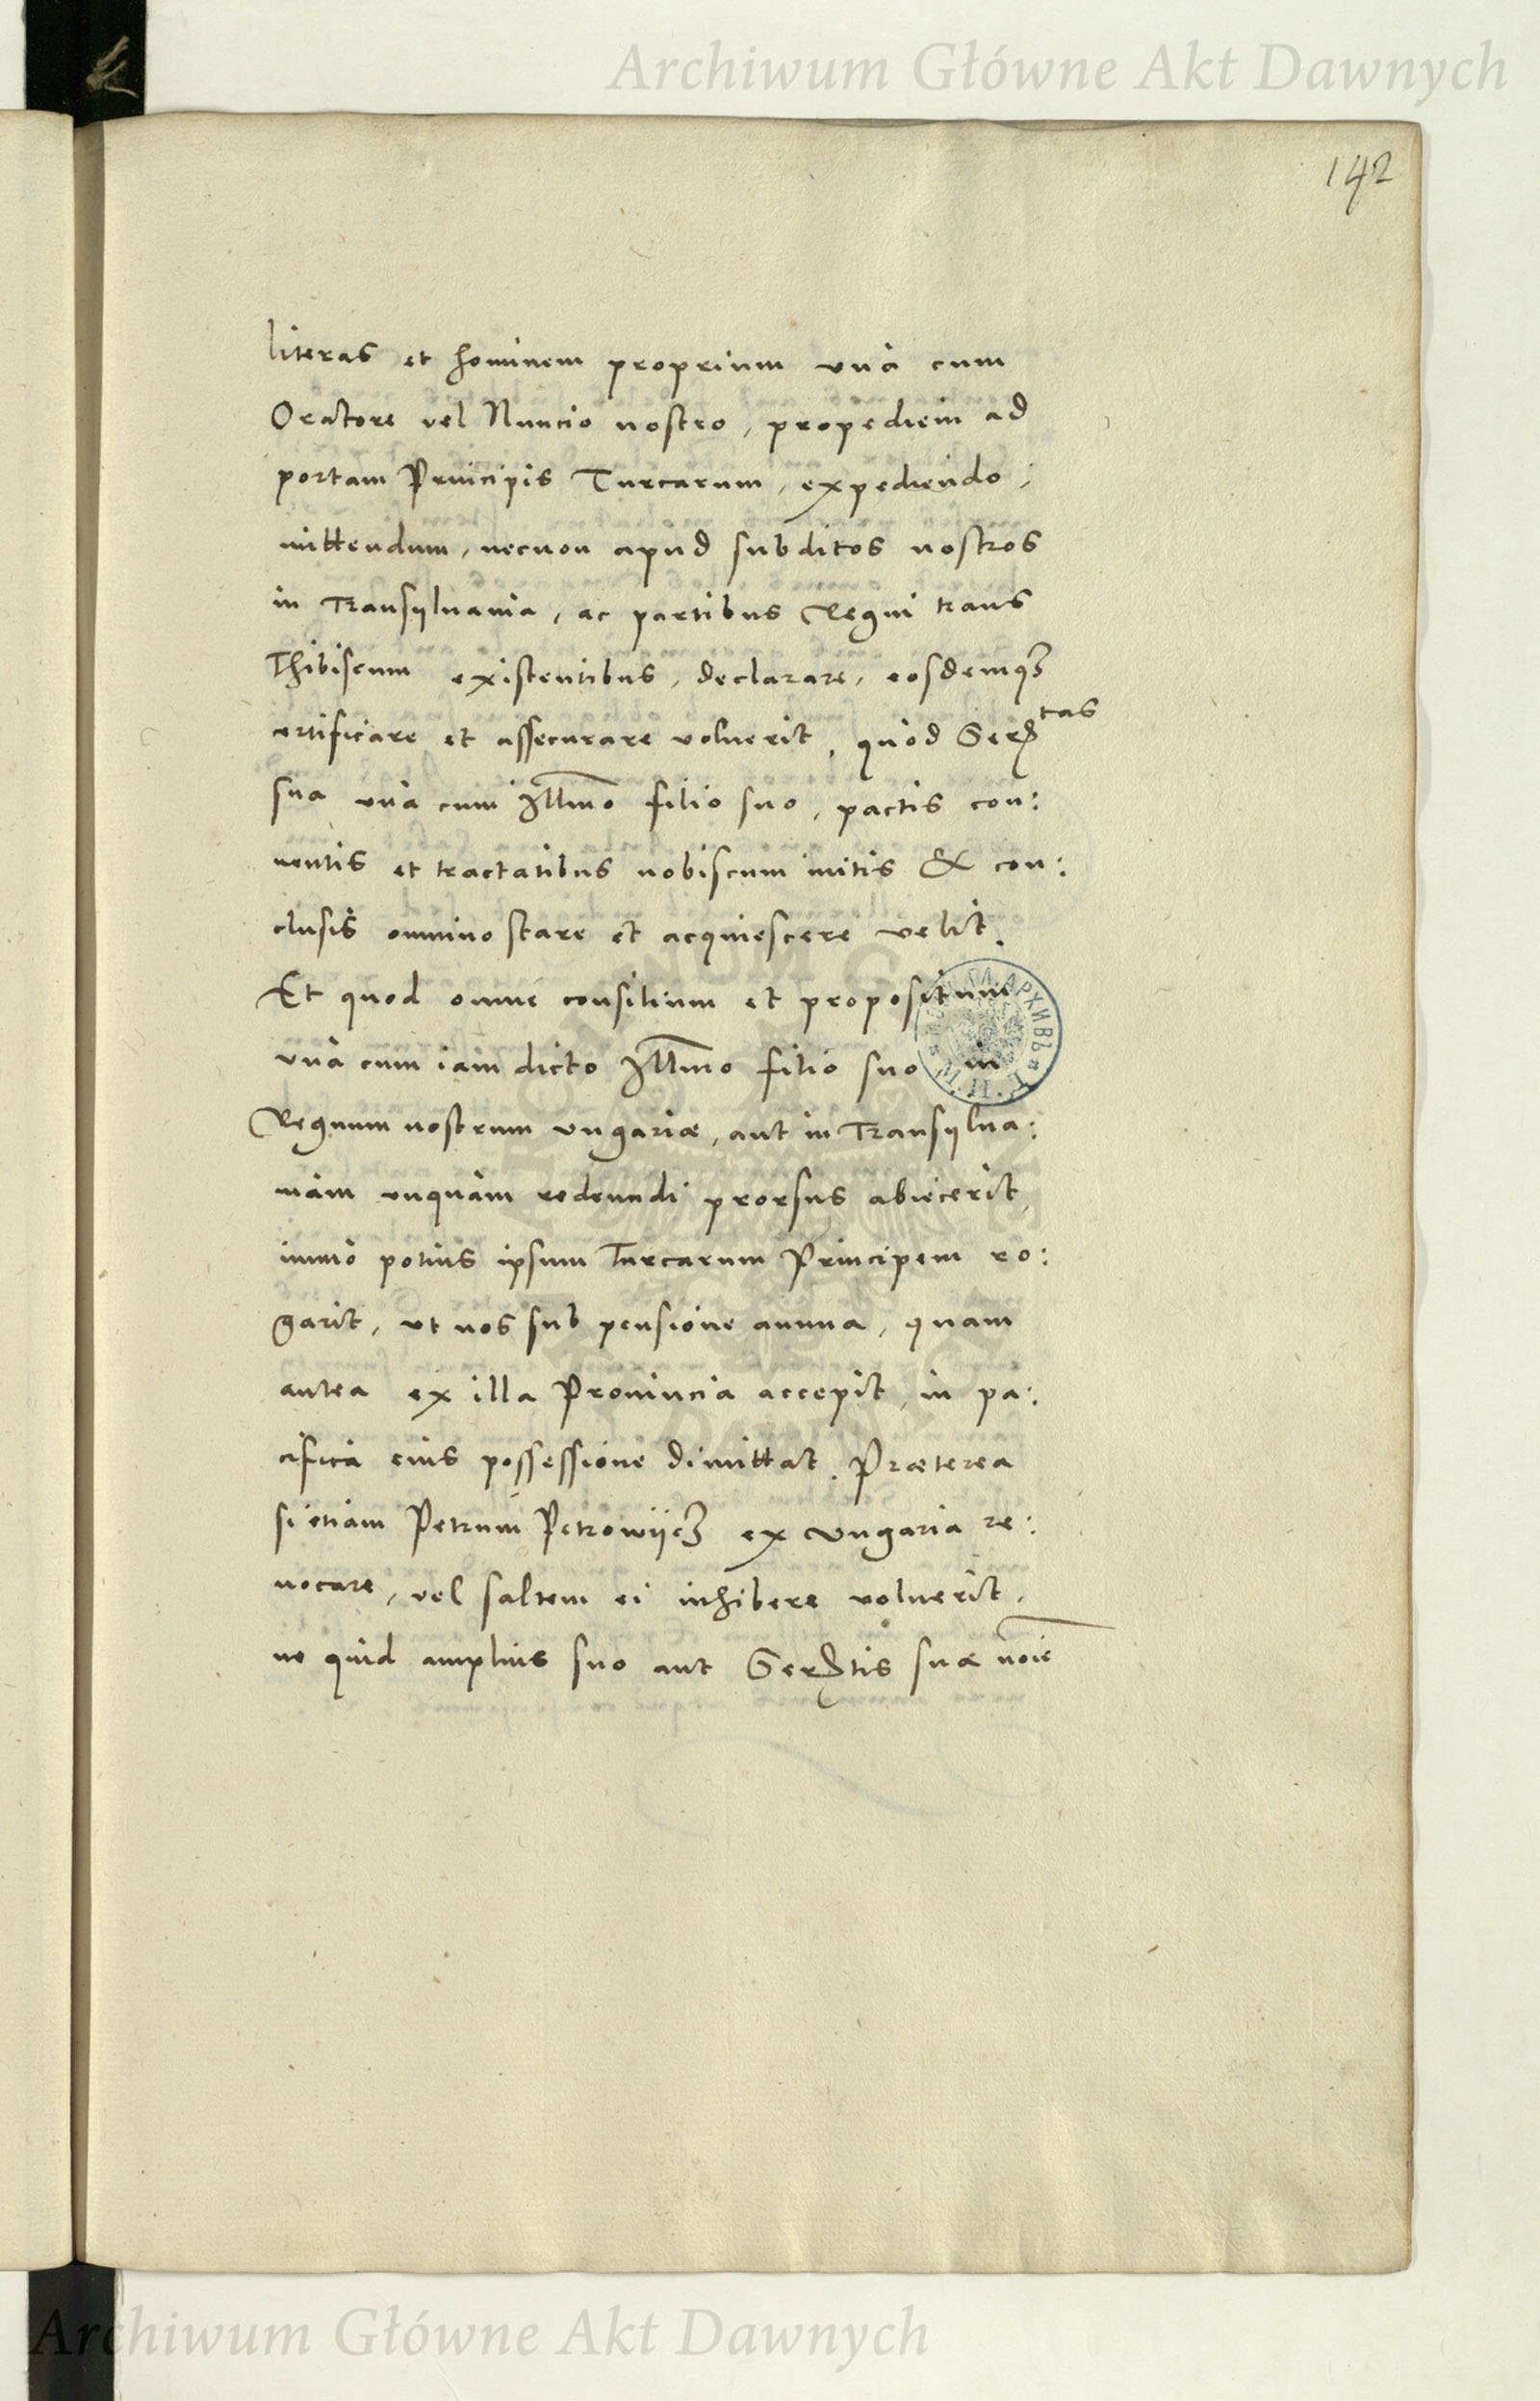 Archiwum Główne Akt Dawnych
142
literas et hominem proprium unà cum
Oratore vel Nuncio nostro, propediem ad
portam Principis Turcarum, expediendo,
mittendum, necnon apud subditos nostros
in Transylvania, ac partibus Regni trans
Thibiscum existentibus, declarare, eosdemqȝ
certificare et assecurare voluerit, quòd Serᵗᵃˢ
sua unà cum Illmo filio suo, pactis con:
ventis et tractatibus nobiscum initis & con:
clusis omnino stare et acquiescere velit.
Et quod omne consilium et propositum
unà cum iam dicto Illmo filio suo in
Regnum nostrum Ungariæ, aut in Transylva:
niam unquam redeundi prorsus abiecerit,
immo potius ipsum Turcarum Principem ro:
garit, ut nos sub pensione annua, quam
antea ex illa Provincia accepit, in pa:
cifica eius possessione dimittat. Præterea
si etiam Petrum Petrowijcȝ ex Ungaria re:
vocare, vel saltem ei inhibere voluerit,
ne quid amplius suo aut Sertis suæ noie
Archiwum Główne Akt Dawnych